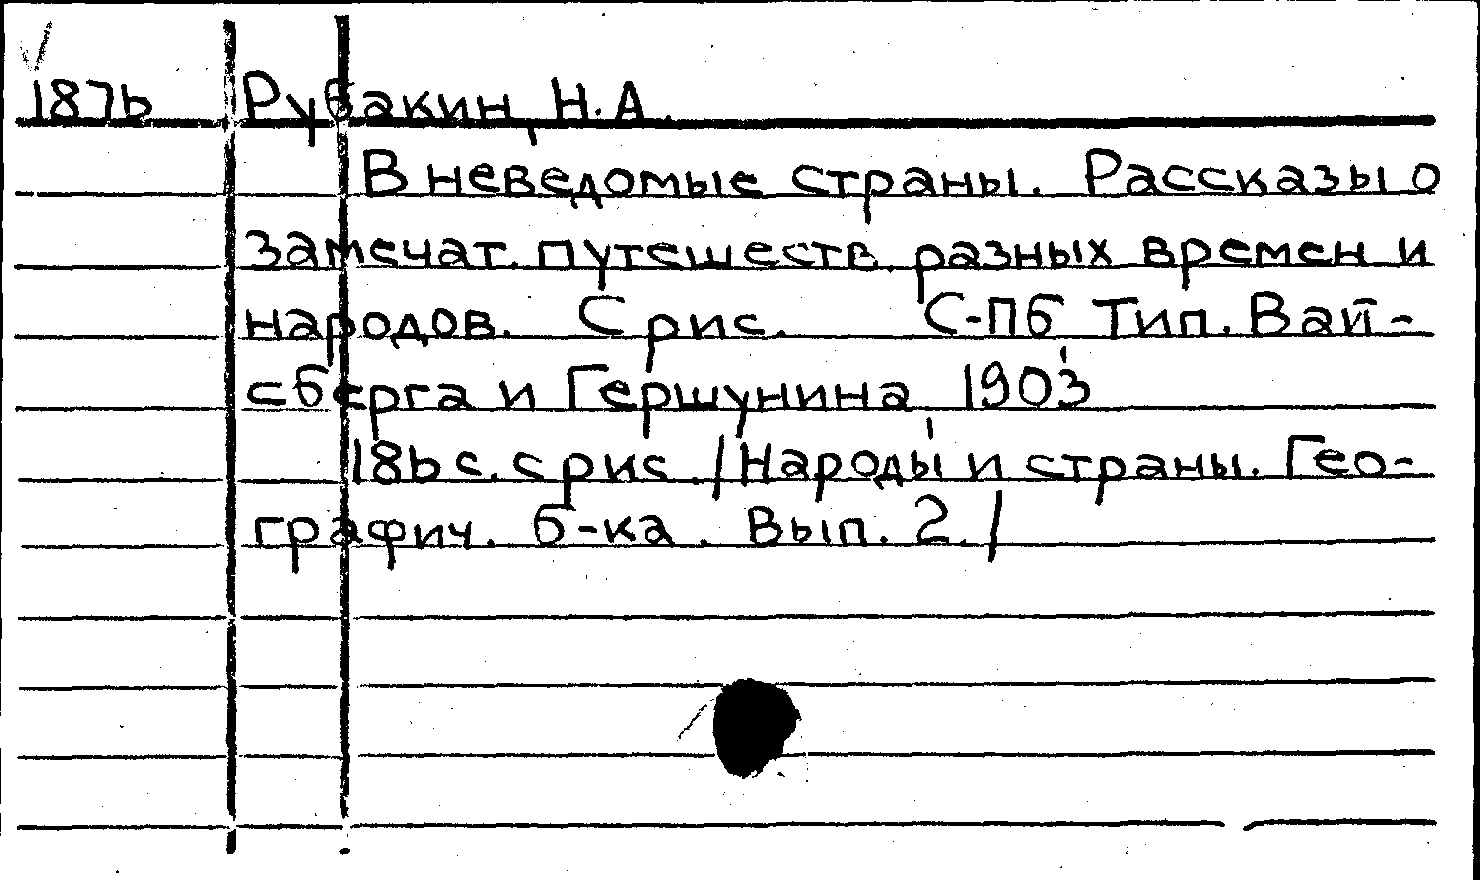 1876 Рубакин, Н.А.
В неведомые страны. Рассказы о
замечат. путешеств. разных времен и
народов. С рис. С-Пб Тип. Вай-
сберга и Гершунина, 1903
186 с. с рис. /Народы и страны. Гео-
графич. б-ка. Вып. 2./